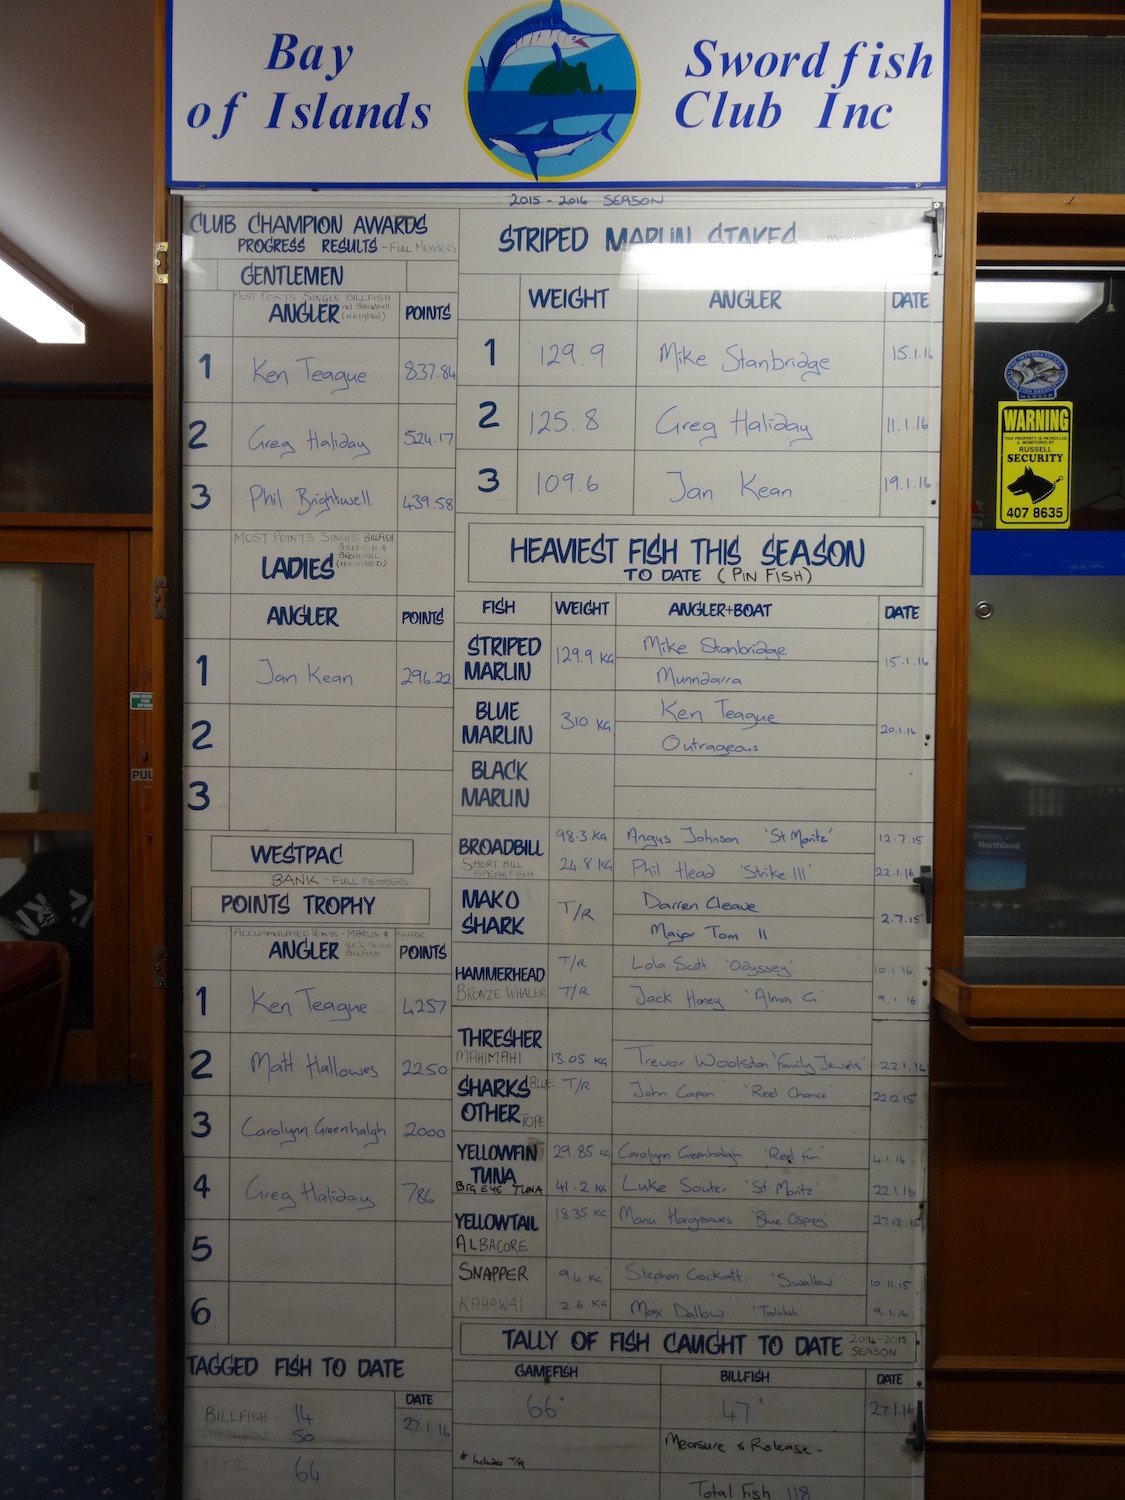 Bay of Islands
Swordfish Club Inc
2015 - 2016 SEASON
CLUB CHAMPION AWARDS
PROGRESS RESULTS - FULL MEMBERS
GENTLEMEN
MOST POINTS SINGLE BILLFISH
ANGLER (weighed) POINTS
1 Ken Teague 837.84
2 Greg Haliday 524.17
3 Phil Brightwell 439.58
MOST POINTS SINGLE BILLFISH
LADIES
ANGLER POINTS
1 Jan Kean 296.22
2
3
WESTPAC
BANK - FULL MEMBERS
POINTS TROPHY
ACCUMULATED POINTS - MARLIN & SHARK
ANGLER POINTS
1 Ken Teague 4257
2 Matt Hallowes 2250
3 Carolynn Greenhalgh 2000
4 Greg Haliday 786
5
6
TAGGED FISH TO DATE
DATE
BILLFISH - 14 27.1.16
GAMEFISH - 50
TOTAL 64
STRIPED MARLIN STAKES
WEIGHT ANGLER DATE
1 129.9 Mike Stanbridge 15.1.16
2 125.8 Greg Haliday 11.1.16
3 109.6 Jan Kean 19.1.16
HEAVIEST FISH THIS SEASON
TO DATE (PIN FISH)
FISH WEIGHT ANGLER+BOAT DATE
STRIPED MARLIN 129.9 KG Mike Stanbridge 15.1.16
Munndarra
BLUE MARLIN 310 KG Ken Teague 20.1.16
Outrageous
BLACK MARLIN
BROADBILL 98.3 KG Angus Johnson 'St Moritz' 12.7.15
SHORT BILL SPEARFISH 24.8 KG Phil Head 'Strike III' 22.1.16
MAKO SHARK T/R Darren Cleave 2.7.15
Major Tom II
HAMMERHEAD T/R Lola Scott 'Odyssey' 10.1.16
BRONZE WHALER T/R Jack Haney 'Alma G' 9.1.16
THRESHER
MAHIMAHI 13.05 KG Trevor Woolston 'Family Jewels' 22.1.16
SHARKS OTHER BLUE T/R John Capon 'Reel Chance' 22.12.15
TOPE
YELLOWFIN TUNA 29.85 KG Carolynn Greenhalgh 'Reel Fun' 4.1.16
BIG EYE TUNA 41.2 KG Luke Souter 'St Moritz' 22.1.16
YELLOWTAIL 18.35 KG Manu Hargreaves 'Blue Osprey' 27.12.15
ALBACORE
SNAPPER 9.4 KG Stephen Cockcutt 'Swallow' 10.11.15
KAHAWAI 2.6 KG Max Dallow 9.1.16
TALLY OF FISH CAUGHT TO DATE 2014-2015 SEASON
GAMEFISH BILLFISH DATE
66* 47* 27.1.16
* Includes T/R
Measure & Release -
Total Fish 118
WARNING
THIS PROPERTY IS PATROLLED
& MONITORED BY
RUSSELL
SECURITY
407 8635
Northland
PUL